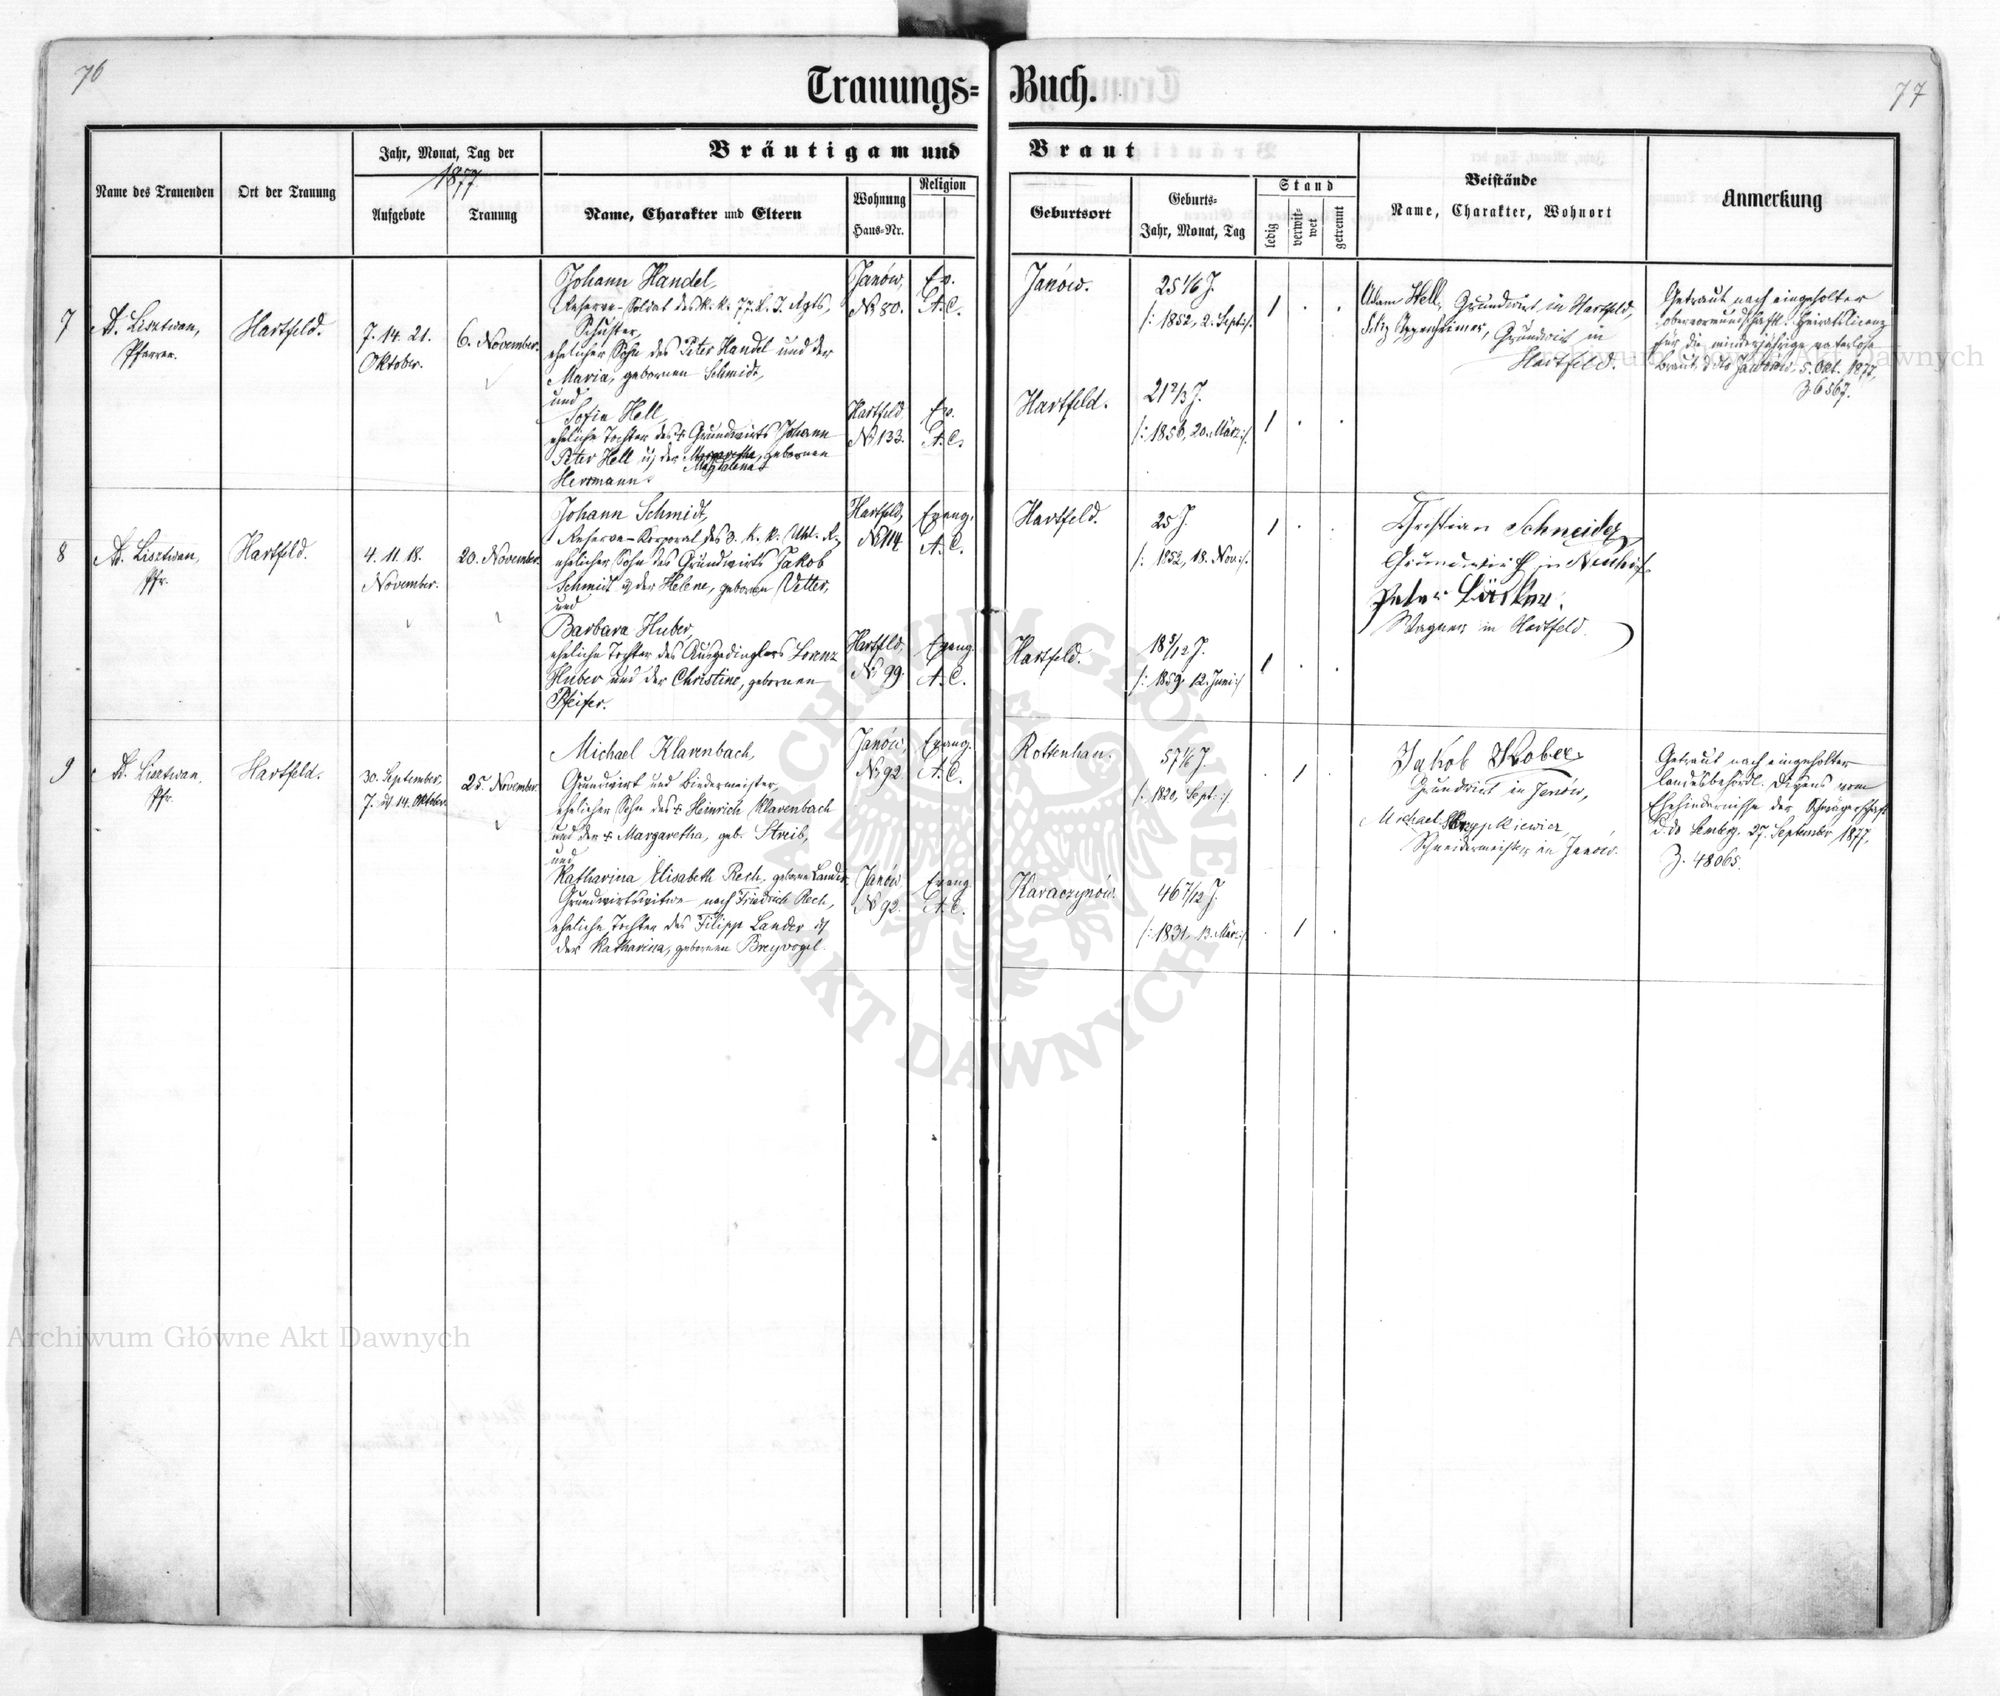 76
Trauungs=
Buch.
77
Name des Trauenden
Ort der Trauung
Jahr, Monat, Tag der
1877.
Aufgebote
Trauung
Bräutigam und
Braut
Name, Charakter und Eltern
Wohnung
Haus=Nr.
Religion
Geburtsort
Geburts=
Jahr, Monat, Tag
Stand
ledig
verwit=
wet
getrennt
Beistände
Name, Charakter, Wohnort
Anmerkung
7
A. Lisztwan,
Pfarrer.
Hartfeld.
7. 14. 21.
Oktober.
6. November.
Johann Handel,
Reserve-Soldat des k. k. 77. L. I. Rgts,
Schuster,
ehelicher Sohn des Peter Handel und der
Maria, gebornen Schmidt,
und
Sofie Hell
eheliche Tochter des † Grundwirts Johann
Peter Hell u, der Margaretha, gebornen
Magdalena
Herrmann.
Janów,
№ 80.
Ev.
A. C.
Hartfeld
№ 133.
Ev.
A. C.
Janów.
25 1/6 J.
/: 1852, 2. Sept :/.
1 . .
Hartfeld.
/: 1856, 20. März :/.
1 . .
Adam Hell, Grundwirt in Hartfeld,
Oppenheimer, Grundwirt in
Hartfeld.
Getraut nach eingeholter
obervormundschaftl. Heiratslicenz
für die minderjährige vaterlose
Braut, ddto Janów, 5. Okt. 1877,
Z 6567.
8
A. Lisztwan,
Pfr.
Hartfeld.
4. 11. 18.
November.
20. November.
Johann Schmidt,
Reserve-Korporal des 3. k. k. Uhl. R.,
ehelicher Sohn des Grundwirts Jakob
Schmidt & der Helene, gebornen Vetter,
und
Barbara Huber,
eheliche Tochter des Ausgedinglers Lorenz
Huber und der Christine, gebornen
Pfeifer.
Hartfeld,
№ 114
Evang.
A. C.
Hartfeld,
№ 99.
Evang.
A. C.
Hartfeld.
25 J.
/: 1852, 18. Nov :/.
1 . .
Hartfeld.
18 5/12 J.
/: 1859. 12. Juni :/
1 . .
Christian Schneider,
Grundwirt in Neuhof.
Peter
Wagner in Hartfeld.
9
A. Lisztwan,
Pfr.
Hartfeld.
30. September,
7. & 14. Oktober.
25. November.
Michael Klarenbach,
Grundwirt und Bindermeister,
ehelicher Sohn des † Heinrich Klarenbach
und der † Margaretha, geb. Streib,
und
Katharina Elisabeth Rech, geborne Lander,
Grundwirtswitwe nach Friedrich Rech,
eheliche Tochter des Filipp Lander &
der Katharina, gebornen Breyvogel.
Janów,
№ 92
Evang.
A. C.
Janów
№ 92.
Evang.
A. C.
Rottenhan.
57 1/6 J.
/: 1820, Sept :/
. 1 .
Karaczynów.
46 7/12 J.
/: 1831, 13. März :/.
. 1 .
Jakob Kober
Grundwirt in Janów,
Michael
Schneidermeister in Janów.
Getraut nach eingeholter
landesbehördl. Dispens vom
Ehehindernisse der Schwägerschaft
d. do Lemberg, 27. September 1877,
Z. 48065.
Archiwum Główne Akt Dawnych
ARCHIWUM GŁÓWNE
AKT DAWNYCH
Archiwum Główne Akt Dawnych